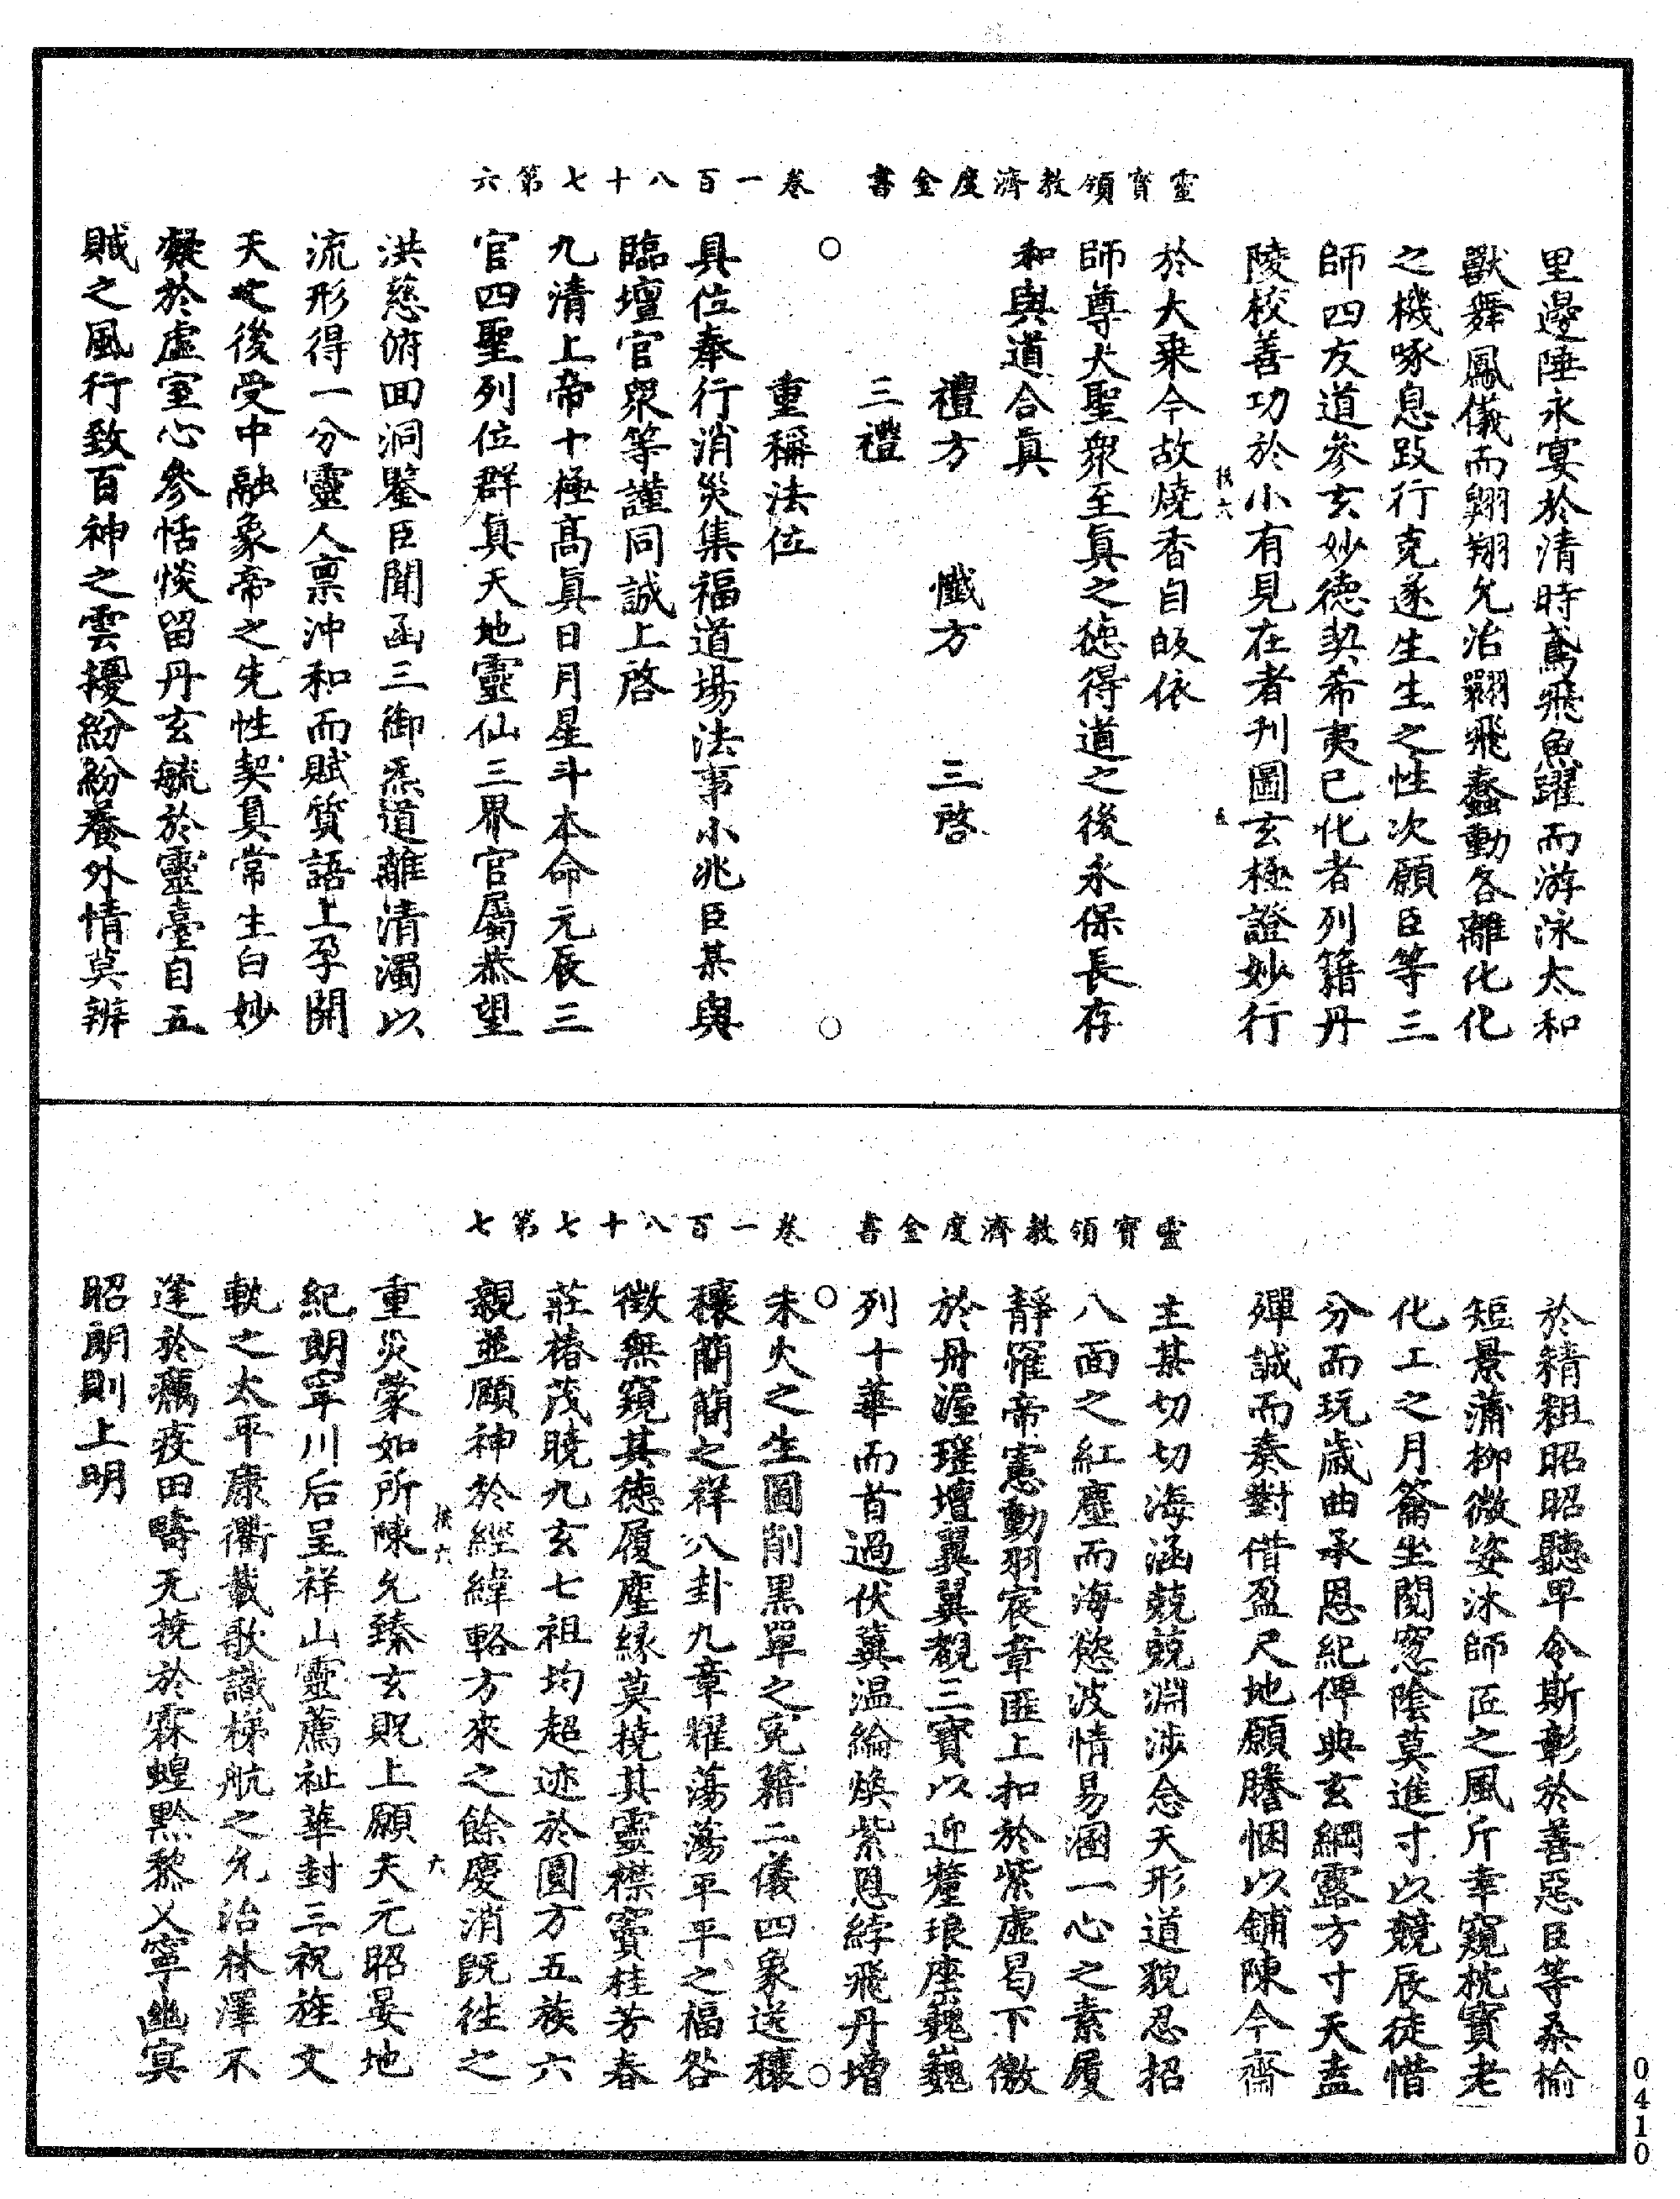 靈寳領教濟度金書　卷一百八十七第六
里邊陲永宴於清時鳶飛魚躍而游泳太和
獸舞鳳儀而翱翔允治翾飛蠢動各離化化
之機啄息跂行克遂生生之性次願臣等三
師四友道參玄妙德契希夷已化者列籍丹
陵校善功於小有見在者刊圖玄極證妙行
於大乗今故燒香自皈依
師尊大聖衆至眞之德得道之後永保長存
和與道合眞
禮方　懺方　三啓
三禮
重稱法位
具位奉行消災集福道場法事小兆臣某與
臨壇官衆等謹同誠上啓
九清上帝十極髙眞日月星斗本命元辰三
官四聖列位群眞天地靈仙三界官屬恭望
洪慈俯回洞鑒臣聞函三御炁道離清濁以
流形得一分靈人禀沖和而賦質語上孕開
天之後受中融象帝之先性契眞常生白妙
凝於虚室心參恬惔留丹玄毓於靈臺自五
賊之風行致百神之雲擾紛紛養外情莫辨
靈寳領教濟度金書　卷一百八十七第七
於精粗昭昭聽卑令斯彰於善惡臣等桑榆
短景蒲柳微姿沐師匠之風斤幸窺杭寳老
化工之月籥坐閲窓陰莫進寸以競辰徒惜
分而玩歳曲承恩紀俾典玄綱露方寸天盍
殫誠而奏對借盈尺地願謄悃以鋪陳今齋
主某切切海涵兢兢淵渉念天形道貌忍招
八面之紅塵而海慾波情易溷一心之素履
静罹帝憲動羽宸章匪上扣於紫虚曷下徹
於丹渥璀壇翼翼覩三寳以迎釐琅座巍巍
列十華而首過伏冀温綸煥紫恩綍飛丹增
未火之生圓削黒單之寃籍二儀四象送穰
穰簡簡之祥八卦九章耀蕩蕩平平之福咎
徴無窺其德履塵縁莫撓其靈襟竇桂芳春
莊椿茂曉九玄七祖均超迹於圓方五族六
親並頤神於經緯輅方來之餘慶消既徃之
重災蒙如所陳允臻玄貺上願天元昭晏地
紀朗寜川后呈祥山靈薦祉華封三祝旌文
軌之太平康衢載歌識梯航之允治秝澤不
逢於癘疫田疇无挠於霖蝗黔黎乂寧幽冥
昭朗則上明
0410